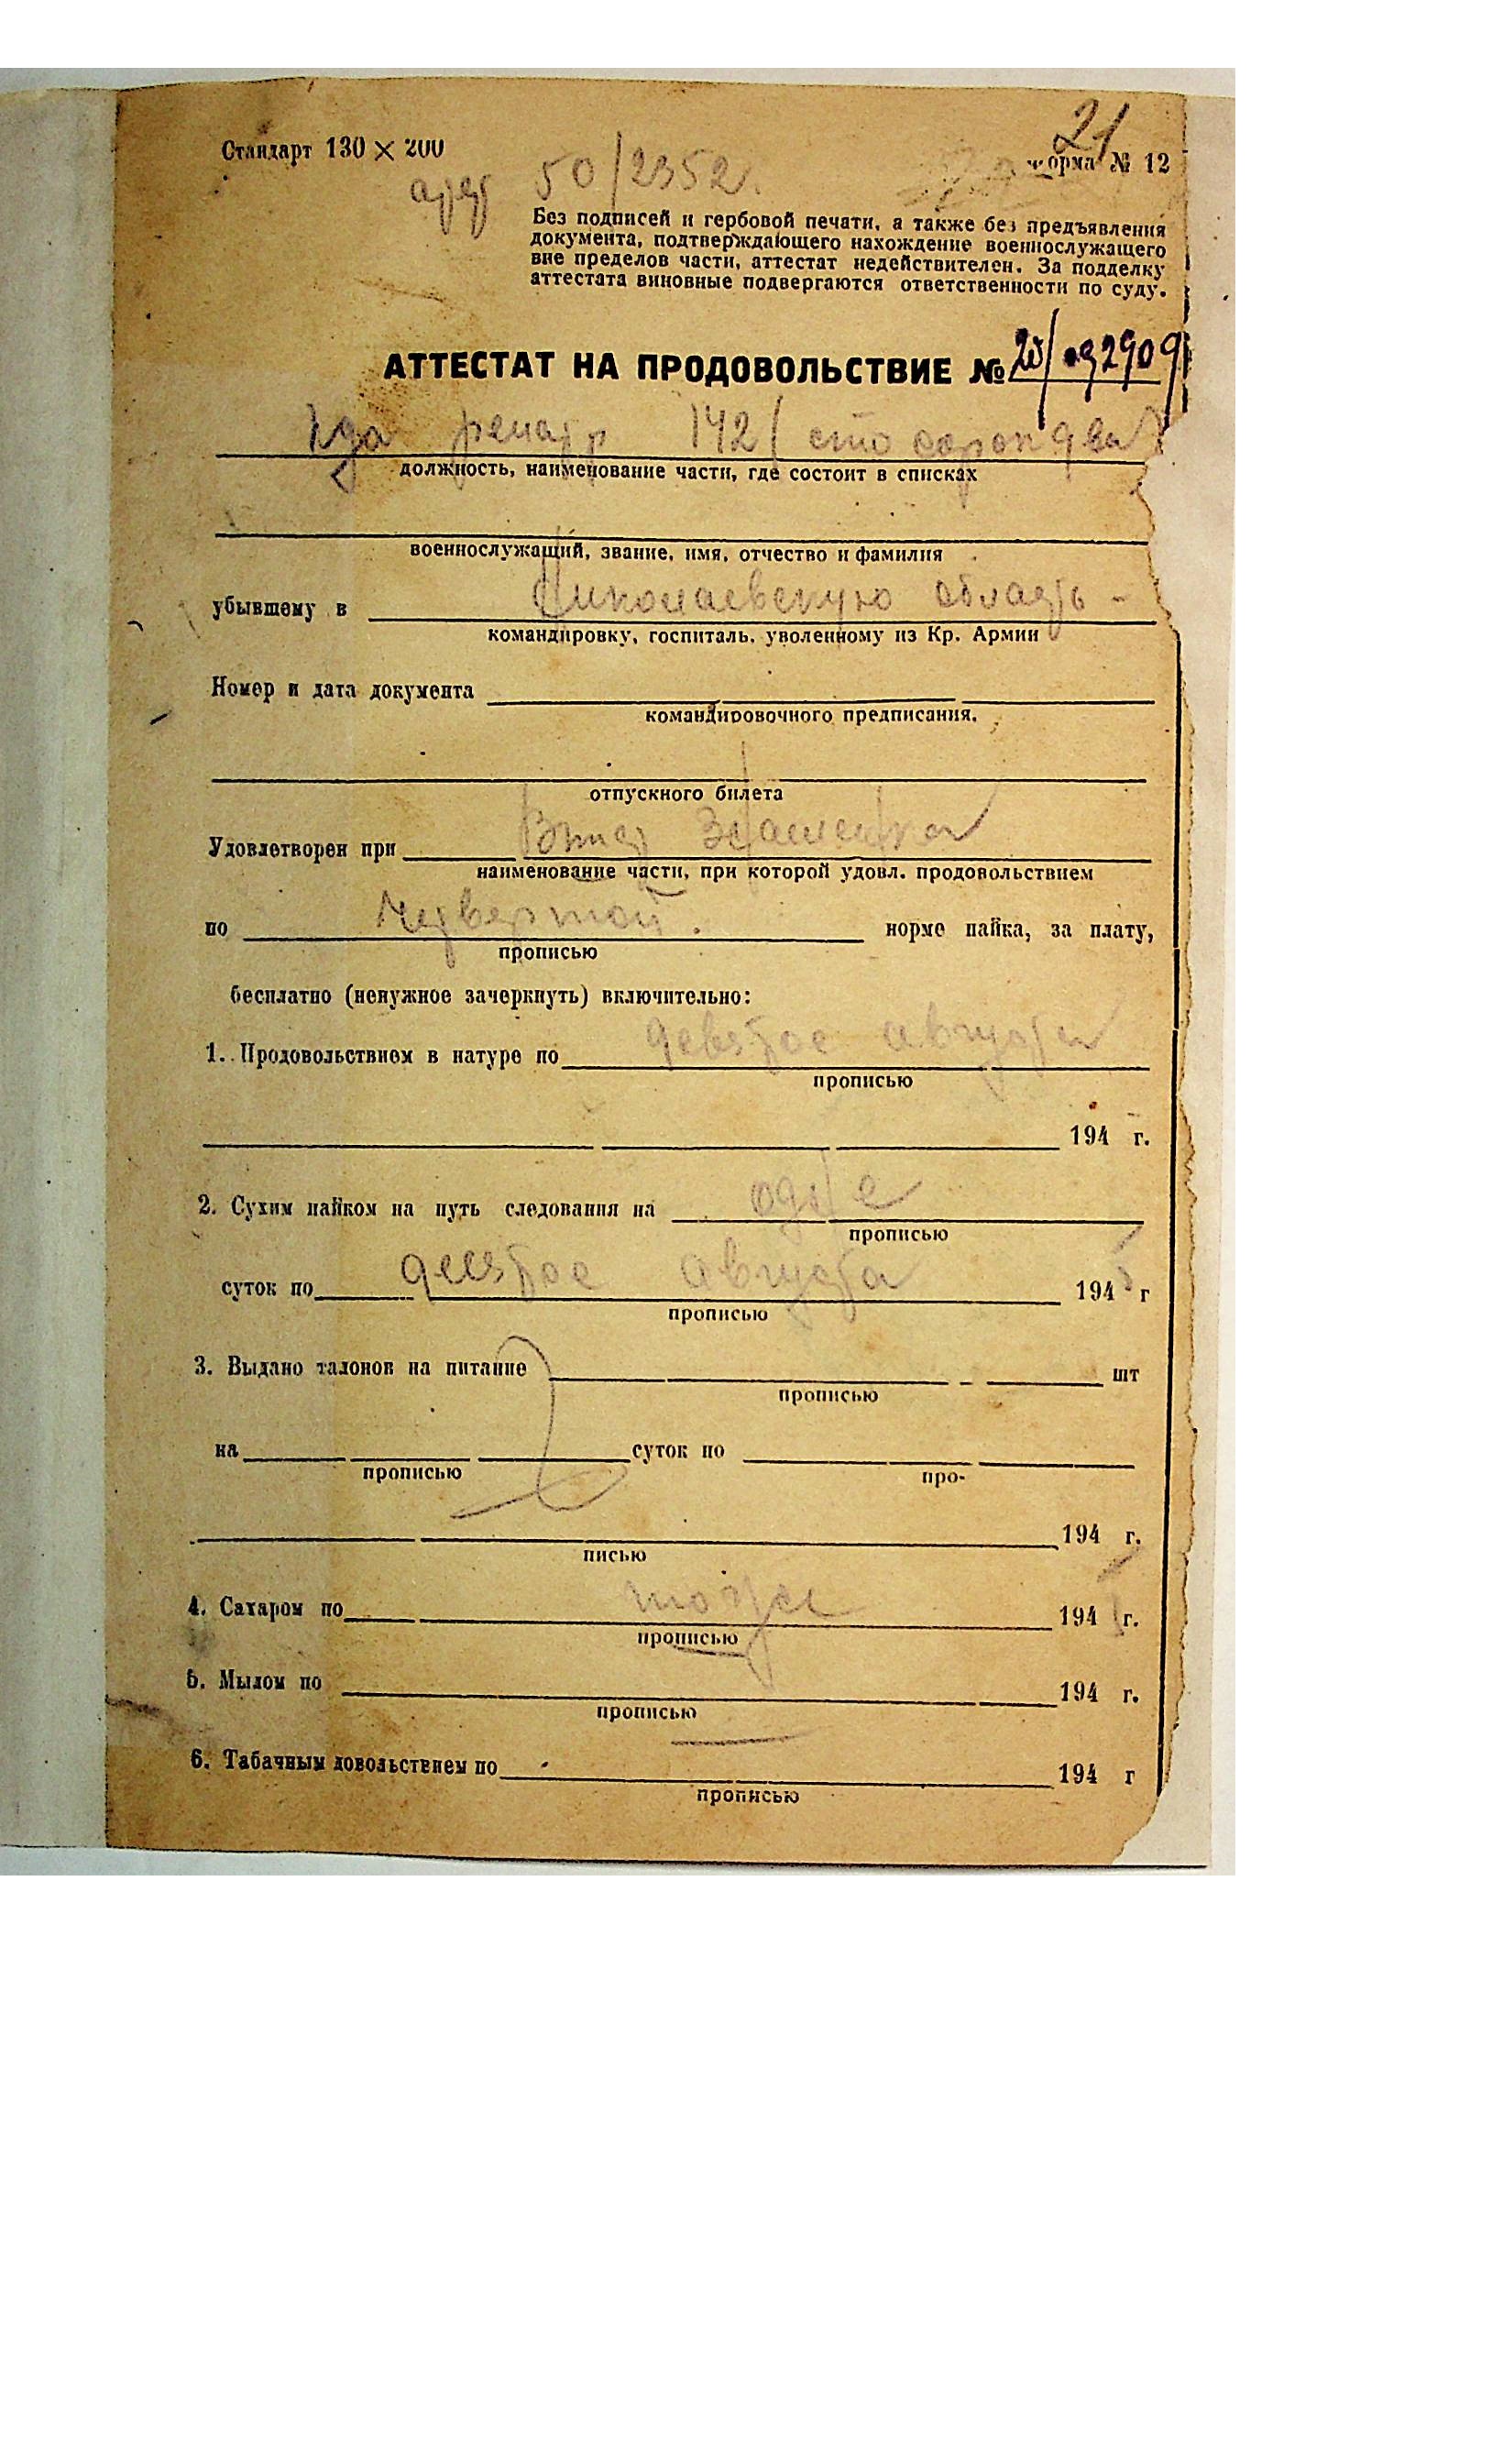 21
Стандарт 130 × 200
Форма № 12
50/2352.
Без подписей и гербовой печати, а также без предъявления
документа, подтверждающего нахождение военнослужащего
вне пределов части, аттестат недействителен. За подделку
аттестата виновные подвергаются ответственности по суду.
АТТЕСТАТ НА ПРОДОВОЛЬСТВИЕ №
142 (сто сорок два)
должность, наименование части, где состоит в списках
военнослужащий, звание, имя, отчество и фамилия
убывшему в Николаевскую область -
командировку, госпиталь, уволенному из Кр. Армии
Номер и дата документа
командировочного предписания.
отпускного билета
Удовлетворен при
наименование части, при которой удовл. продовольствием
по четвертой норме пайка, за плату,
прописью
бесплатно (ненужное зачеркнуть) включительно:
1. Продовольствием в натуре по девятое августа
прописью
194 г.
2. Сухим пайком на путь следования на одне
прописью
суток по девятое августа 1945 г
прописью
3. Выдано талонов на питание шт
прописью
на суток по
прописью про-
194 г.
писью
4. Сахаром по тоже 1945 г.
прописью
5. Мылом по 194 г.
прописью
6. Табачным довольствием по 194 г
прописью